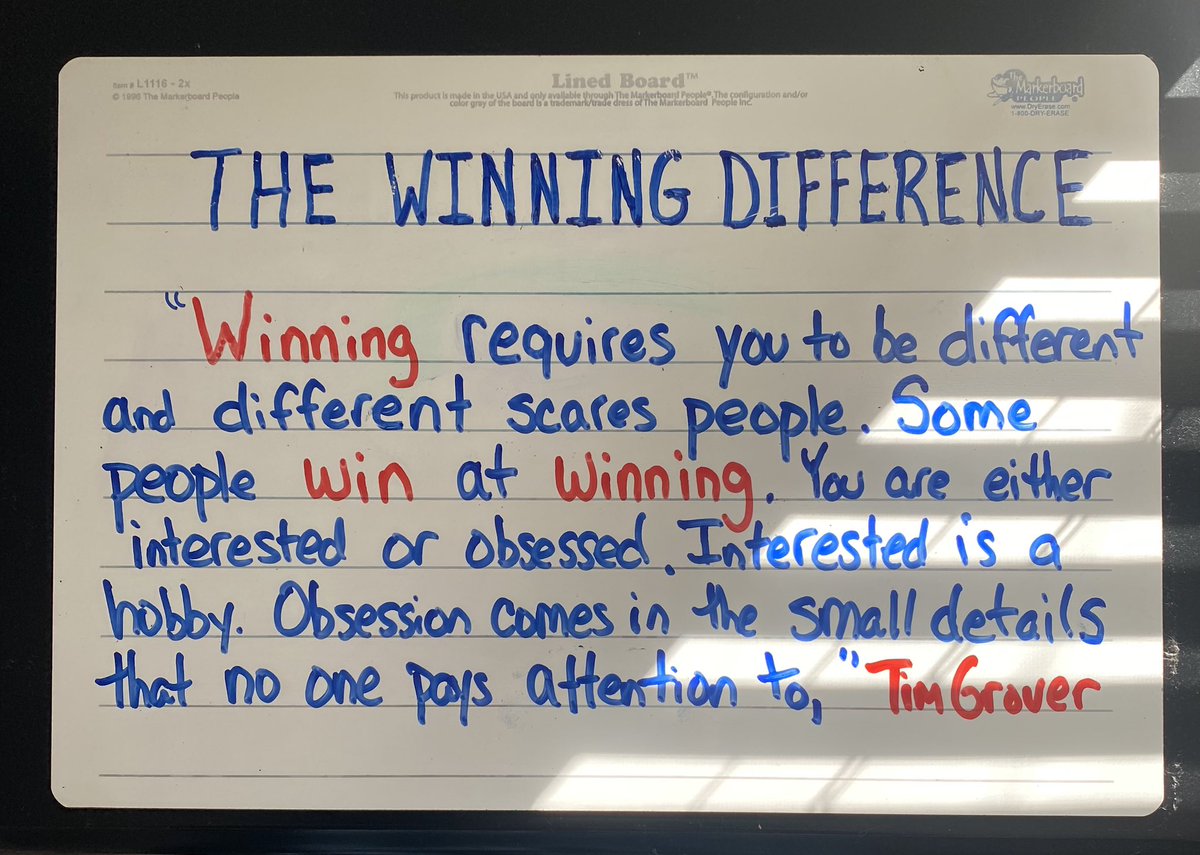 Item # L1116 - 2x
© 1996 The Markerboard People
Lined Board™
This product is made in the USA and only available through The Markerboard People® The configuration and/or
color gray of the board is a trademark/trade dress of The Markerboard People Inc.
The
Markerboard
PEOPLE
www.DryErase.com
1-800-DRY-ERASE
THE WINNING DIFFERENCE
"Winning requires you to be different
and different scares people. Some
people win at winning. You are either
interested or obsessed. Interested is a
hobby. Obsession comes in the small details
that no one pays attention to," Tim Grover